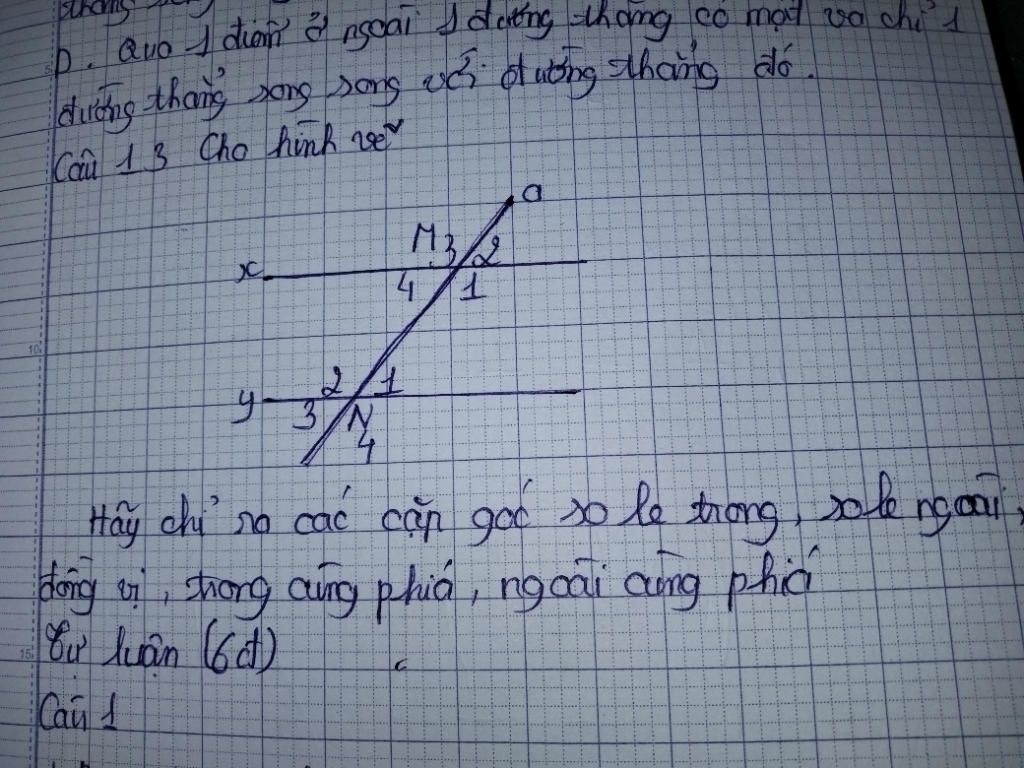 D. Qua 1 điểm ở ngoài 1 đường thẳng có một và chỉ 1
đường thẳng song song với đường thẳng đó.
Câu 13 Cho hình vẽ
a
M 3 2
x
4 1
2 1
y
3 N
4
Hãy chỉ ra các cặp góc so le trong, so le ngoài,
đồng vị, trong cùng phía, ngoài cùng phía
Tự luận (6đ)
Câu 1